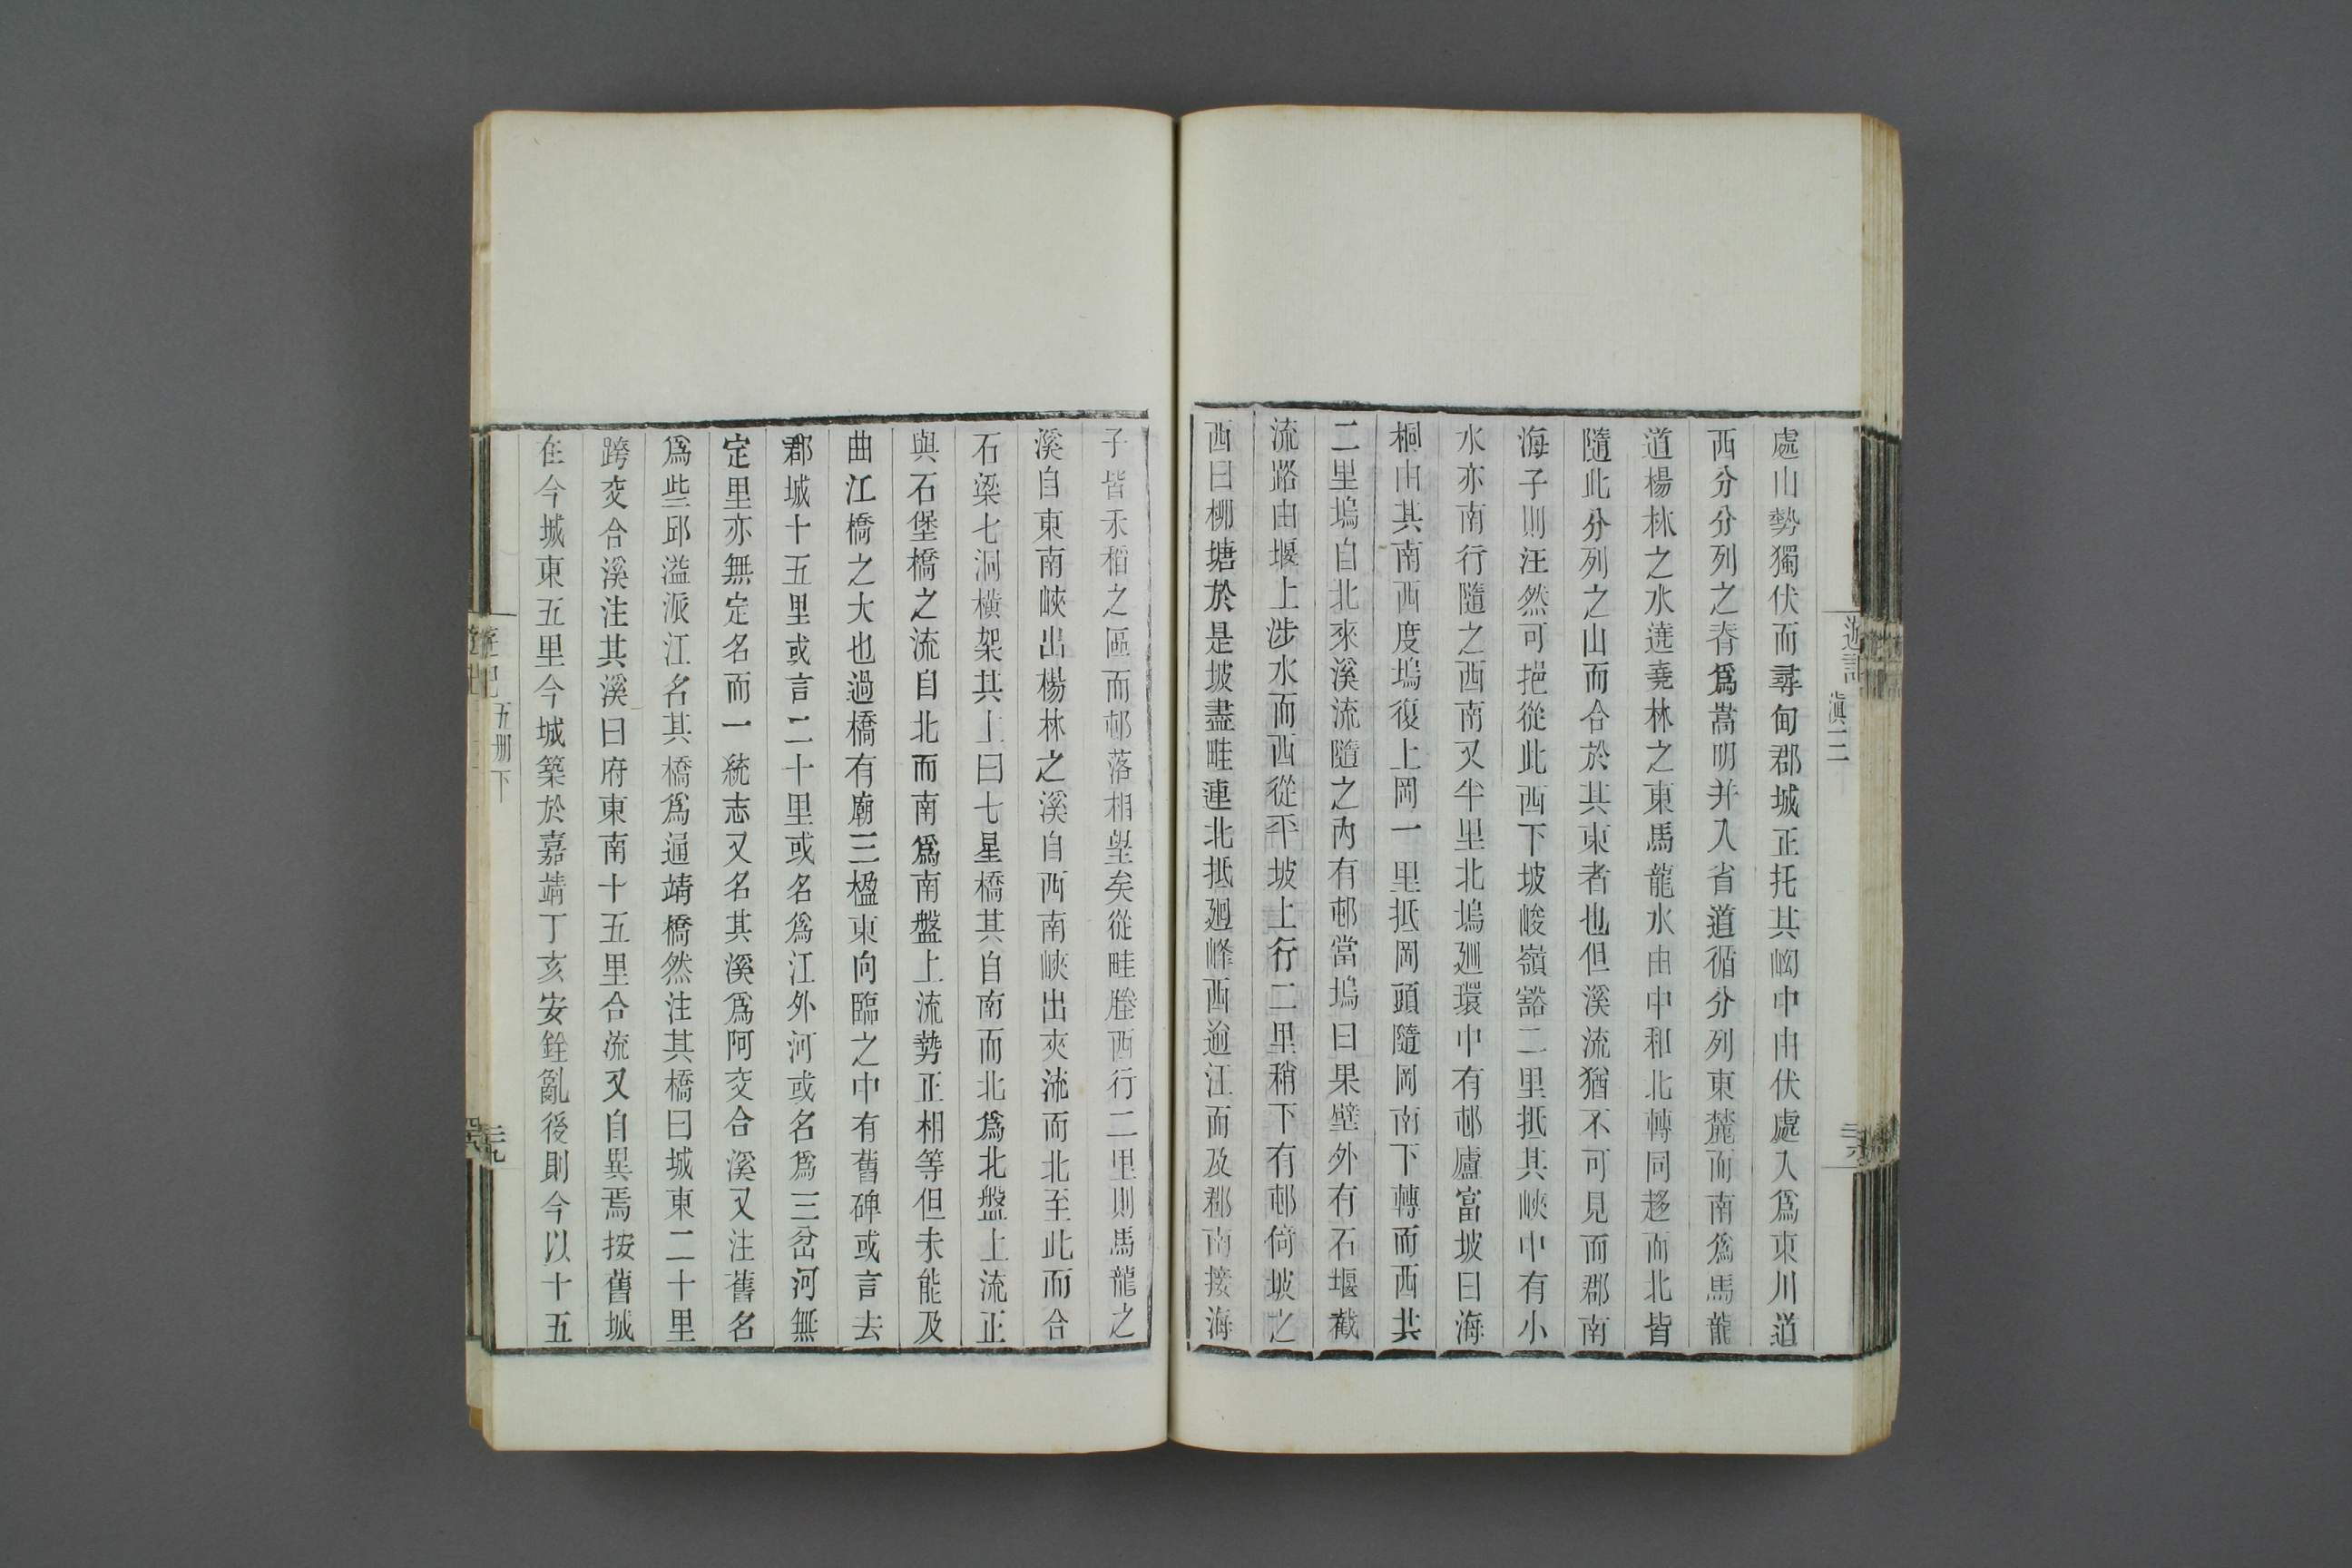 遊記 滇三
處山勢獨伏而尋甸郡城正托其峋中由伏處入爲東川道
西分分列之脊爲嵩明并入省道循分列東麓而南爲馬龍
道楊林之水遶堯林之東馬龍水由中和北轉同趨而北皆
隨此分列之山而合於其東者也但溪流猶不可見而郡南
海子則汪然可挹從此西下坡峻嶺豁二里抵其峽中有小
水亦南行隨之西南又半里北塢廻環中有邨廬富坡曰海
桐由其南西度塢復上岡一里抵岡頭隨岡南下轉而西共
二里塢自北來溪流隨之內有邨當塢曰果壁外有石堰截
流路由堰上涉水而西從平坡上行二里稍下有邨倚坡之
西曰柳塘於是坡盡畦連北抵廻峰西逾江而及郡南接海
子皆禾稻之區而邨落相望矣從畦塍西行二里則馬龍之
溪自東南峽出楊林之溪自西南峽出夾流而北至此而合
石梁七洞橫架其上曰七星橋其自南而北爲北盤上流正
與石堡橋之流自北而南爲南盤上流勢正相等但未能及
曲江橋之大也過橋有廟三楹東向臨之中有舊碑或言去
郡城十五里或言二十里或名爲江外河或名爲三岔河無
定里亦無定名而一統志又名其溪爲阿交合溪又注舊名
爲些邱溢派江名其橋爲通靖橋然注其橋曰城東二十里
跨交合溪注其溪曰府東南十五里合流又自異焉按舊城
在今城東五里今城築於嘉靖丁亥安銓亂後則今以十五
五册下